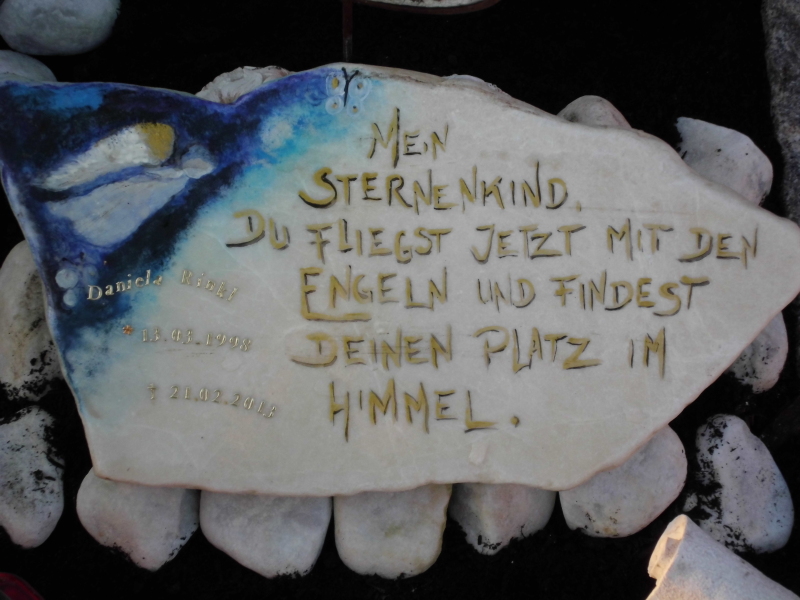 Mein
Sternenkind.
Du fliegst jetzt mit den
Engeln und findest
deinen Platz im
Himmel.
Daniela
* 13.03.1998
† 21.02.2013